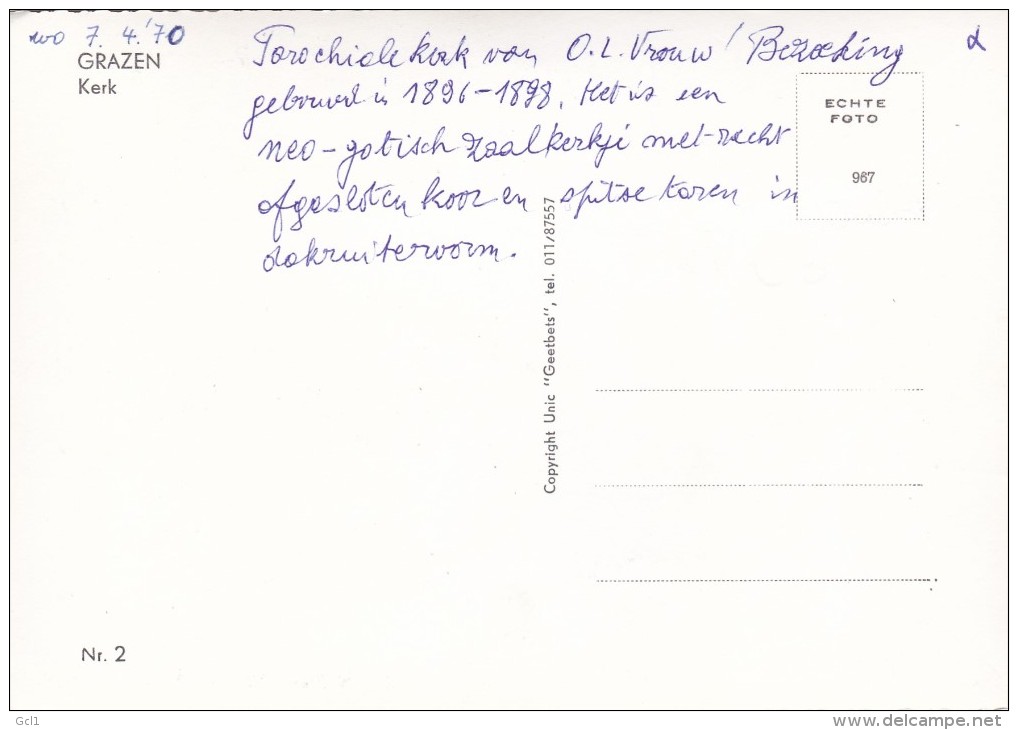 wo 7. 4. '70
GRAZEN
Kerk
Parochiale kerk van O.L. Vrouw Bezoeking
gebouwd in 1896-1898. Het is een
neo-gotisch zaalkerkje met recht
afgesloten koor en spitse toren in
dakruitervorm.
ECHTE
FOTO
967
Copyright Unic "Geetbets", tel. 011/87557
Nr. 2
Gcl1
www.delcampe.net